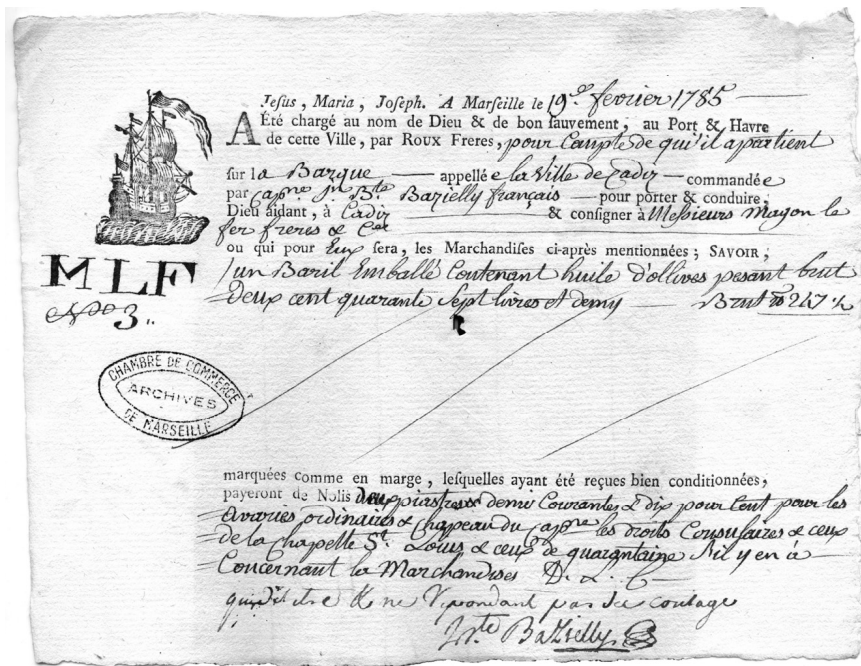 Jesus, Maria, Joseph. A Marseille le 19e fevrier 1785
A Été chargé au nom de Dieu & de bon sauvement, au Port & Havre
de cette Ville, par Roux Freres, pour Compte de qu'il apartient
sur la Barque appellée la Ville de Cadiz commandée
par Capne Jn Bte Bazielly français pour porter & conduire,
Dieu aidant, à Cadiz & consigner à Messieurs Magon le
fer freres & Cie
ou qui pour Eux sera, les Marchandises ci-après mentionnées; SAVOIR;
MLF
No 3
un Baril Emballé Contenant huile d'ollives pesant brut
Deux cent quarante Sept livres et demy Brut 247 ½
CHAMBRE DE COMMERCE
ARCHIVES
DE MARSEILLE
marquées comme en marge, lesquelles ayant été reçues bien conditionnées,
payeront de Nolis deux piastres & demi Courantes & dix pour Cent pour les
avaries ordinaires & Chapeau du Capne les droits Consulaires & ceux
de la Chapelle St. Louis & ceux de quarantaine s'il y en à
Concernant la Marchandises D. L. C
que dit être & ne Repondant pas du coulage
Bte Bazielly